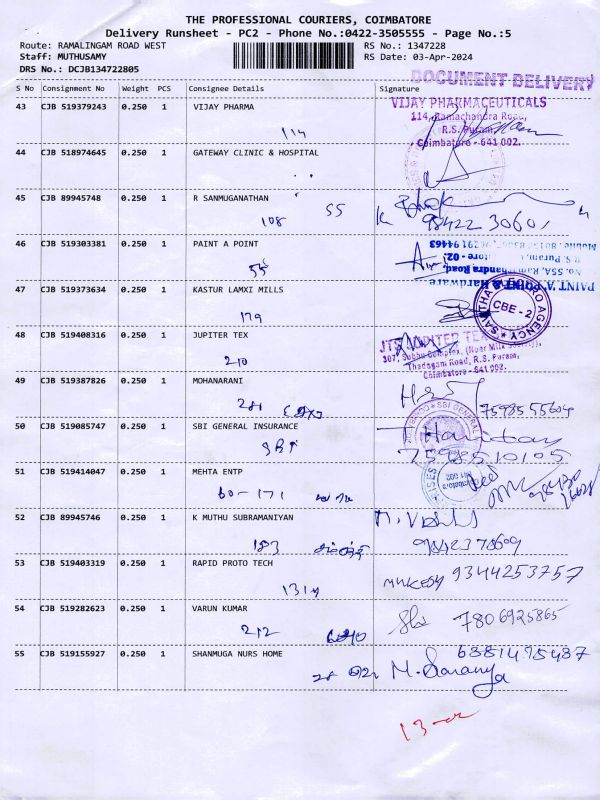 THE PROFESSIONAL COURIERS, COIMBATORE
Delivery Runsheet - PC2 - Phone No.:0422-3505555 - Page No.:5
Route: RAMALINGAM ROAD WEST RS No.: 1347228
Staff: MUTHUSAMY RS Date: 03-Apr-2024
DRS No.: DCJB134722805
DOCUMENT DELIVERY
S No Consignment No Weight PCS Consignee Details Signature
43 CJB 519379243 0.250 1 VIJAY PHARMA
VIJAY PHARMACEUTICALS
114, Ramachandra Road,
R.S. Puram,
Coimbatore - 641 002.
114
44 CJB 518974645 0.250 1 GATEWAY CLINIC & HOSPITAL
45 CJB 89945748 0.250 1 R SANMUGANATHAN
108 55
98422 30601
46 CJB 519303381 0.250 1 PAINT A POINT
55
47 CJB 519373634 0.250 1 KASTUR LAMXI MILLS
179
CBE - 2
48 CJB 519408316 0.250 1 JUPITER TEX
JUPITER TEX
Thadagam Road, R.S. Puram,
Coimbatore - 641 002.
210
49 CJB 519387826 0.250 1 MOHANARANI
281
7598555604
50 CJB 519085747 0.250 1 SBI GENERAL INSURANCE
SBI
SBI GENERAL
7598510105
51 CJB 519414047 0.250 1 MEHTA ENTP
60-171
52 CJB 89945746 0.250 1 K MUTHU SUBRAMANIYAN
183
9842378609
53 CJB 519403319 0.250 1 RAPID PROTO TECH
1314
MUKESH 9344253757
54 CJB 519282623 0.250 1 VARUN KUMAR
212
7806925865
55 CJB 519155927 0.250 1 SHANMUGA NURS HOME
6381475437
28 M. Saranya